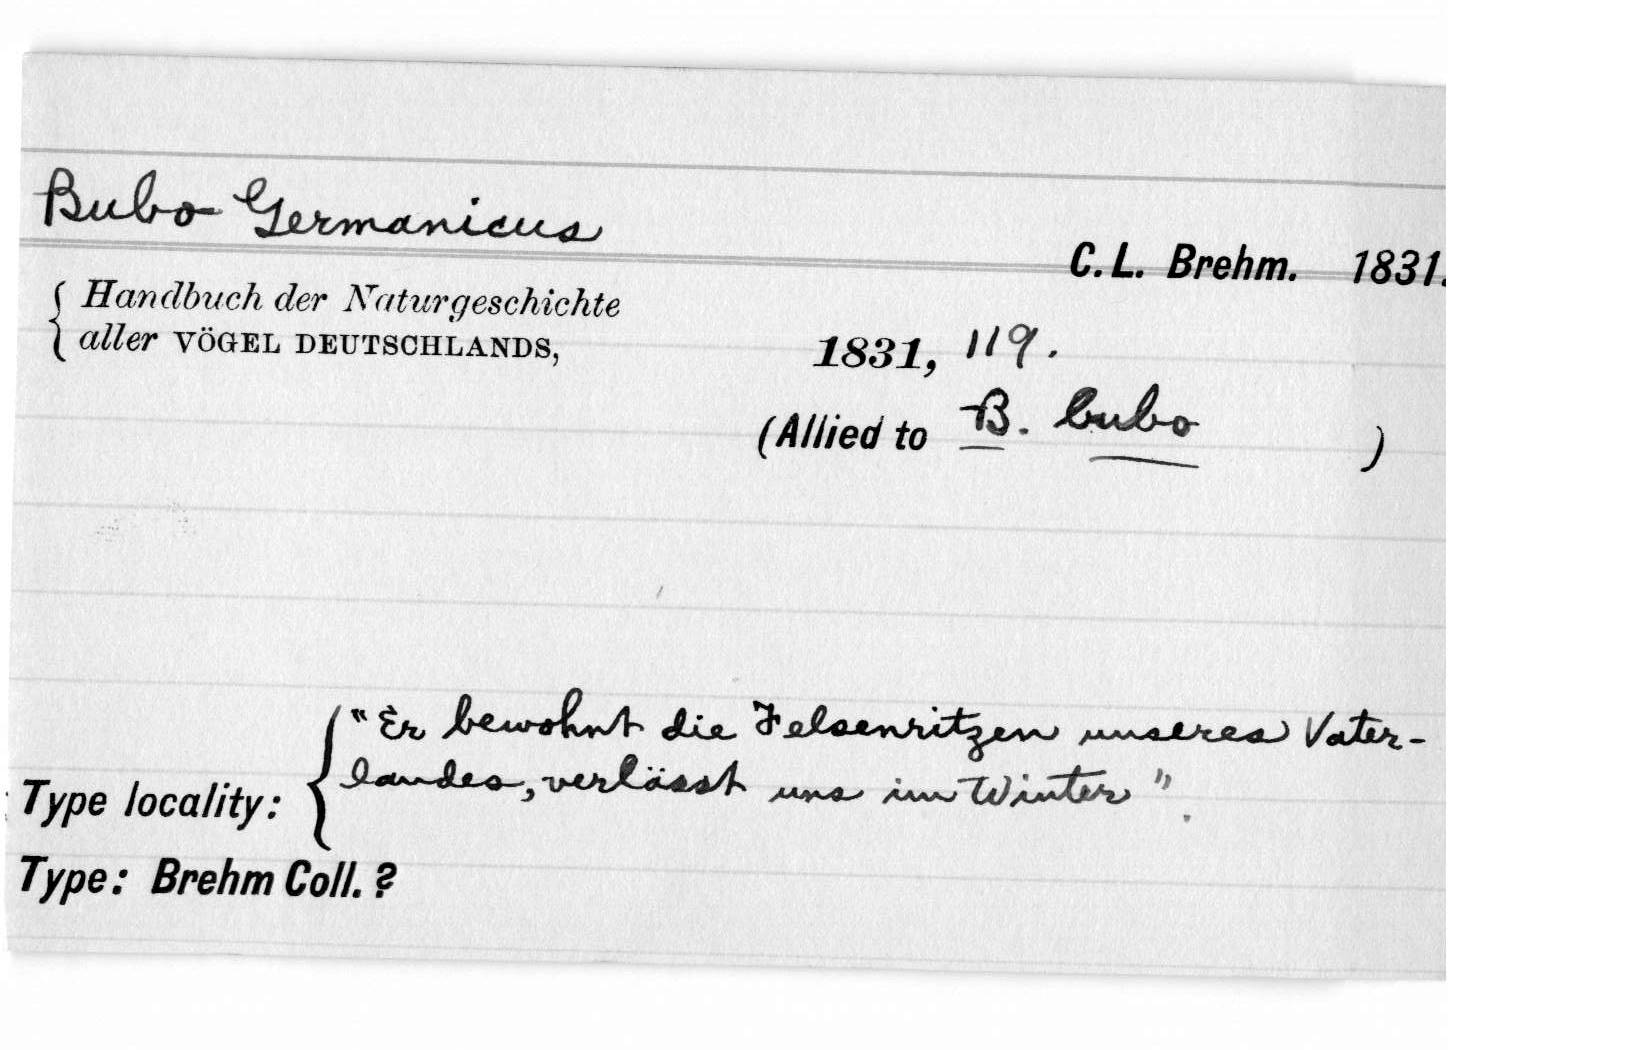 Bubo Germanicus
C. L. Brehm. 1831.
Handbuch der Naturgeschichte
aller VÖGEL DEUTSCHLANDS,
1831, 119.
(Allied to B. bubo )
"Er bewohnt die Felsenritzen unseres Vater-
landes, verlässt uns im Winter".
Type locality:
Type: Brehm Coll. ?